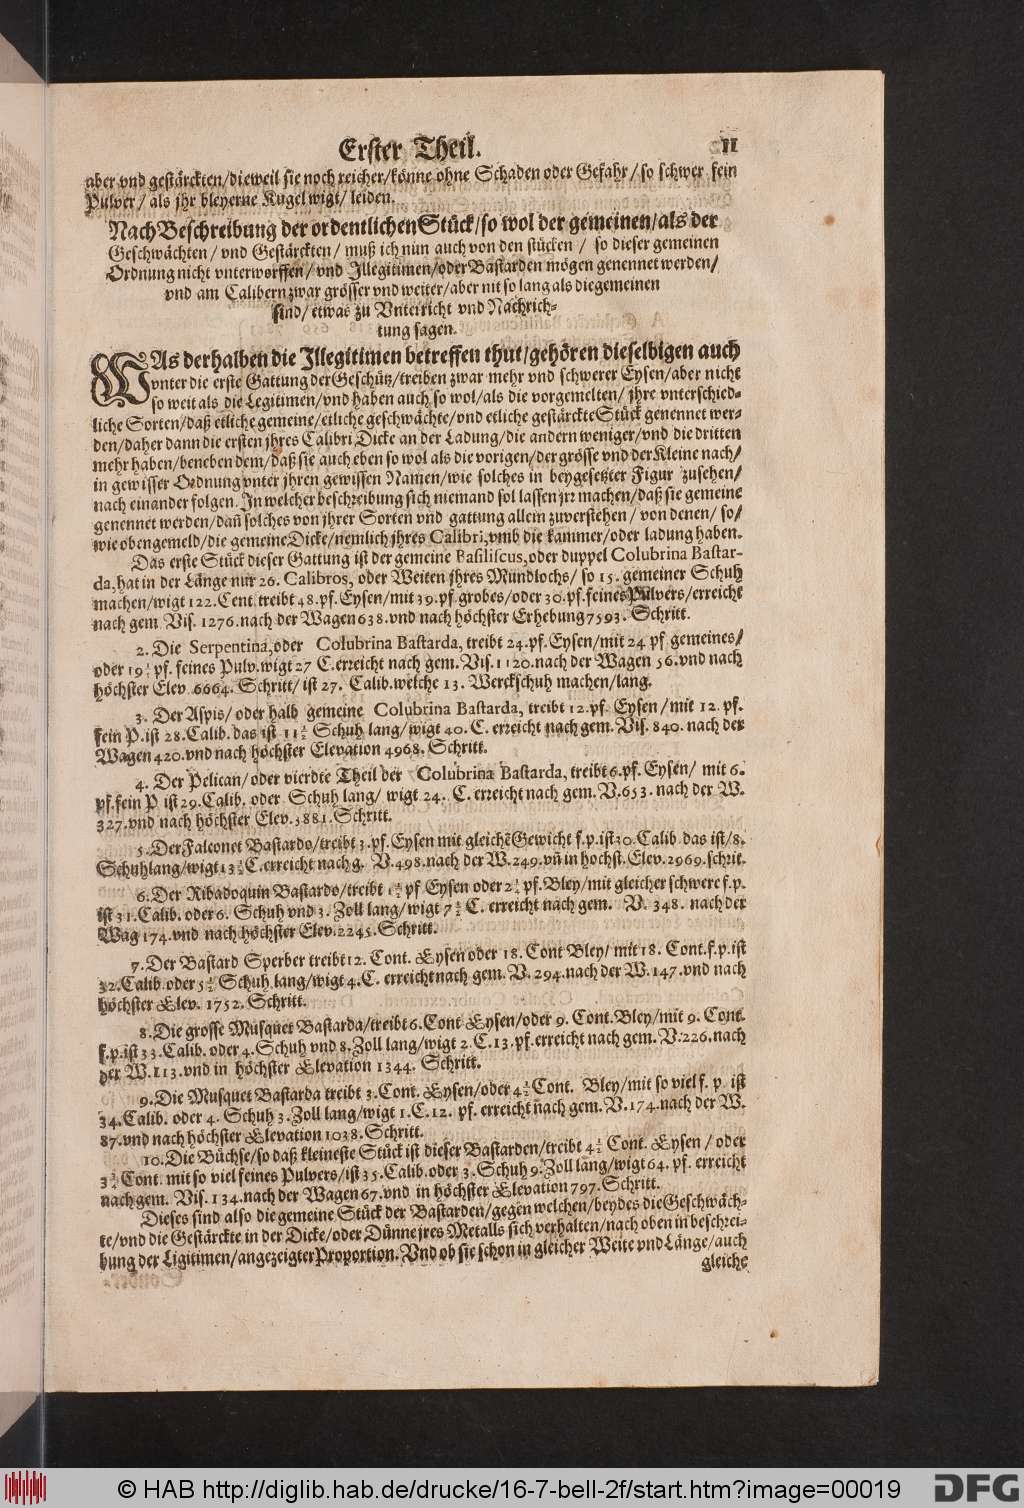 Erster Theil. 11
aber vnd gestärckten/dieweil sie noch reicher/könne ohne Schaden oder Gefahr/so schwer fein
Pulver/als jhr bleyerne Kugel wigt/leiden.
Nach Beschreibung der ordentlichen Stück/so wol der gemeinen/als der
Geschwächten/vnd Gestärckten/muß ich nun auch von den stücken/so dieser gemeinen
Ordnung nicht vnterworffen/vnd Illegitimen/oder Bastarden mögen genennet werden/
vnd am Calibern zwar grösser vnd weiter/aber nit so lang als die gemeinen
sind/etwas zu Vnterricht vnd Nachrich-
tung sagen.
WAs derhalben die Illegitimen betreffen thut/gehören dieselbigen auch
vnter die erste Gattung der Geschütz/treiben zwar mehr vnd schwerer Eysen/aber nicht
so weit als die Legitimen/vnd haben auch so wol/als die vorgemelten/jhre vnterschied-
liche Sorten/daß etliche gemeine/etliche geschwächte/vnd etliche gestärckte Stück genennet wer-
den/daher dann die ersten jhres Calibri Dicke an der Ladung/die andern weniger/vnd die dritten
mehr haben/beneben dem/daß sie auch eben so wol als die vorigen/der grösse vnd der Kleine nach/
in gewisser Ordnung vnter jhren gewissen Namen/wie solches in beygesetzter Figur zusehen/
nach einander folgen. In welcher beschreibung sich niemand sol lassen jrr machen/daß sie gemeine
genennet werden/dañ solches von jhrer Sorten vnd gattung allein zuverstehen/von denen/so/
wie obengemeld/die gemeine Dicke/nemlich jhres Calibri,vmb die kammer/oder ladung haben.
Das erste Stück dieser Gattung ist der gemeine Basiliscus,oder duppel Colubrina Bastar-
da,hat in der Länge nur 26. Calibros, oder Weiten jhres Mundlochs/so 15. gemeiner Schuh
machen/wigt 122. Cent. treibt 48. pf. Eysen/mit 39. pf. grobes/oder 30. pf. feines Pulvers/erreicht
nach gem. Vis. 1276. nach der Wagen 638. vnd nach höchster Erhebung 7593. Schritt.
2. Die Serpentina,oder Colubrina Bastarda, treibt 24. pf. Eysen/mit 24 pf gemeines/
oder 19½ pf. feines Pulv. wigt 27 C. erreicht nach gem. Vis. 1120. nach der Wagen 56. vnd nach
höchster Elev 6664. Schritt/ist 27. Calib. welche 13. Werckschuh machen/lang.
3. Der Aspis/oder halb gemeine Colubrina Bastarda, treibt 12. pf. Eysen/mit 12. pf.
fein P. ist 28. Calib. das ist 11½ Schuh lang/wigt 40. C. erreicht nach gem. Vis. 840. nach der
Wagen 420. vnd nach höchster Elevation 4968. Schritt.
4. Der Pelican/oder vierdte Theil der Colubrina Bastarda, treibt 6. pf. Eysen/mit 6.
pf. fein P. ist 29. Calib. oder Schuh lang/wigt 24. C. erreicht nach gem. V. 653. nach der W.
327. vnd nach höchster Elev. 3881. Schritt.
5. Der Falconet Bastardo/treibt 3. pf. Eysen mit gleichē Gewicht f. p. ist 30. Calib. das ist/8.
Schuh lang/wigt 13½ C. erreicht nach g. V. 498. nach der W. 249. vñ in höchst. Elev. 2969. schrit.
6. Der Ribadoquin Bastardo/treibt 1½ pf Eysen oder 2¼ pf. Bley/mit gleicher schwere f. p.
ist 31. Calib. oder 6. Schuh vnd 3. Zoll lang/wigt 7½ C. erreicht nach gem. V. 348. nach der
Wag 174. vnd nach höchster Elev. 2245. Schritt.
7. Der Bastard Sperber treibt 12. Cont. Eysen oder 18. Cont Bley/mit 18. Cont. f. p. ist
32. Calib oder 5½ Schuh lang/wigt 4. C. erreicht nach gem. V. 294. nach der W. 147. vnd nach
höchster Elev. 1752. Schritt.
8. Die grosse Musquet Bastarda/treibt 6. Cont Eysen/oder 9. Cont. Bley/mit 9. Cont.
f. p. ist 33. Calib. oder 4. Schuh vnd 8. Zoll lang/wigt 2 C. 13. pf. erreicht nach gem. V. 226. nach
der W. 113. vnd in höchster Elevation 1344. Schritt.
9. Die Musquet Bastarda treibt 3. Cont. Eysen/oder 4½ Cont. Bley/mit so viel f. p. ist
34. Calib. oder 4. Schuh 3. Zoll lang/wigt 1. C. 12. pf. erreicht nach gem. V. 174. nach der W.
87. vnd nach höchster Elevation 1038. Schritt.
10. Die Büchse/so daß kleineste Stück ist dieser Bastarden/treibt 4½ Cont. Eysen/oder
3½ Cont. mit so viel feines Pulvers/ist 35. Calib. oder 3. Schuh 9. Zoll lang/wigt 64. pf. erreicht
nach gem. Vis. 134. nach der Wagen 67. vnd in höchster Elevation 797. Schritt.
Dieses sind also die gemeine Stück der Bastarden/gegen welchen/beydes die Geschwäch-
te/vnd die Gestärckte in der Dicke/oder Dünne jres Metalls sich verhalten/nach oben in beschrei-
bung der Ligitimen/angezeigter Proportion. Vnd ob sie schon in gleicher Weite vnd Länge/auch
gleiche
© HAB http://diglib.hab.de/drucke/16-7-bell-2f/start.htm?image=00019
DFG